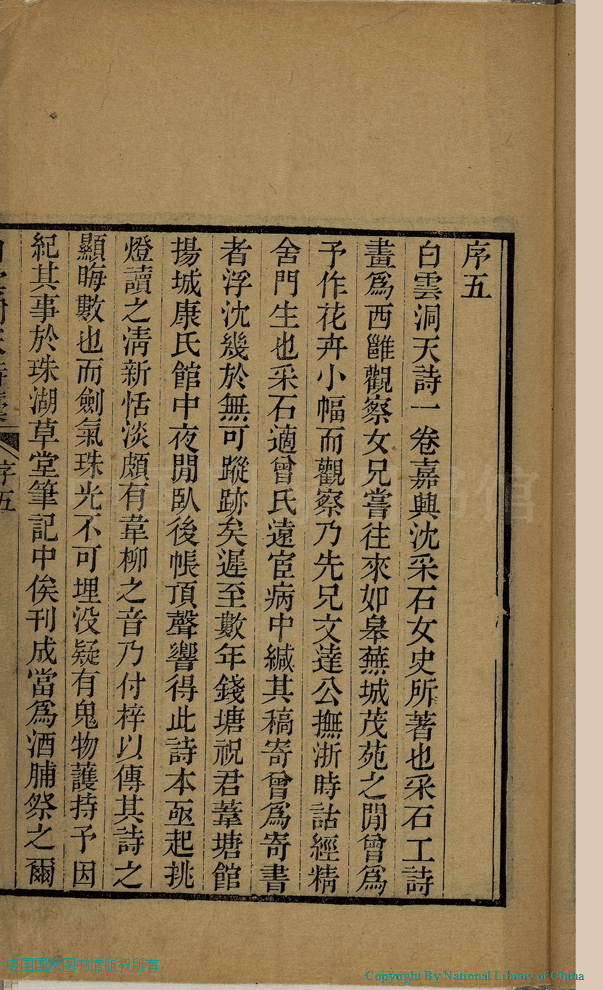 序五
白雲洞天詩一卷嘉興沈采石女史所著也采石工詩
畫爲西雝觀察女兄嘗往來如皋蕪城茂苑之閒曾爲
予作花卉小幅而觀察乃先兄文達公撫浙時詁經精
舍門生也采石適曾氏遠宦病中緘其稿寄曾爲寄書
者浮沈幾於無可蹤跡矣遲至數年錢塘祝君葦塘館
揚城康氏館中夜閒臥後帳頂聲響得此詩本亟起挑
燈讀之淸新恬淡頗有韋柳之音乃付梓以傳其詩之
顯晦數也而劍氣珠光不可埋没疑有鬼物護持予因
紀其事於珠湖草堂筆記中俟刊成當爲酒脯祭之爾
序五
Copyright By National Library of China